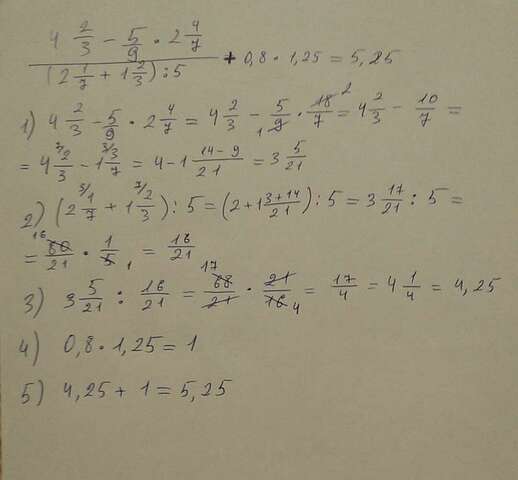 4 2/3 − 5/9 · 2 4/7
(2 1/7 + 1 2/3) : 5 + 0,8 · 1,25 = 5,25
1) 4 2/3 − 5/9 · 2 4/7 = 4 2/3 − 5/9 · 18/7 = 4 2/3 − 10/7 =
= 4 2/3 − 1 3/7 = 4 − 1 14−9/21 = 3 5/21
2) (2 1/7 + 1 2/3) : 5 = (2+1 3+14/21) : 5 = 3 17/21 : 5 =
= 80/21 · 1/5 = 16/21
3) 3 5/21 : 16/21 = 68/21 · 21/16 = 17/4 = 4 1/4 = 4,25
4) 0,8 · 1,25 = 1
5) 4,25 + 1 = 5,25